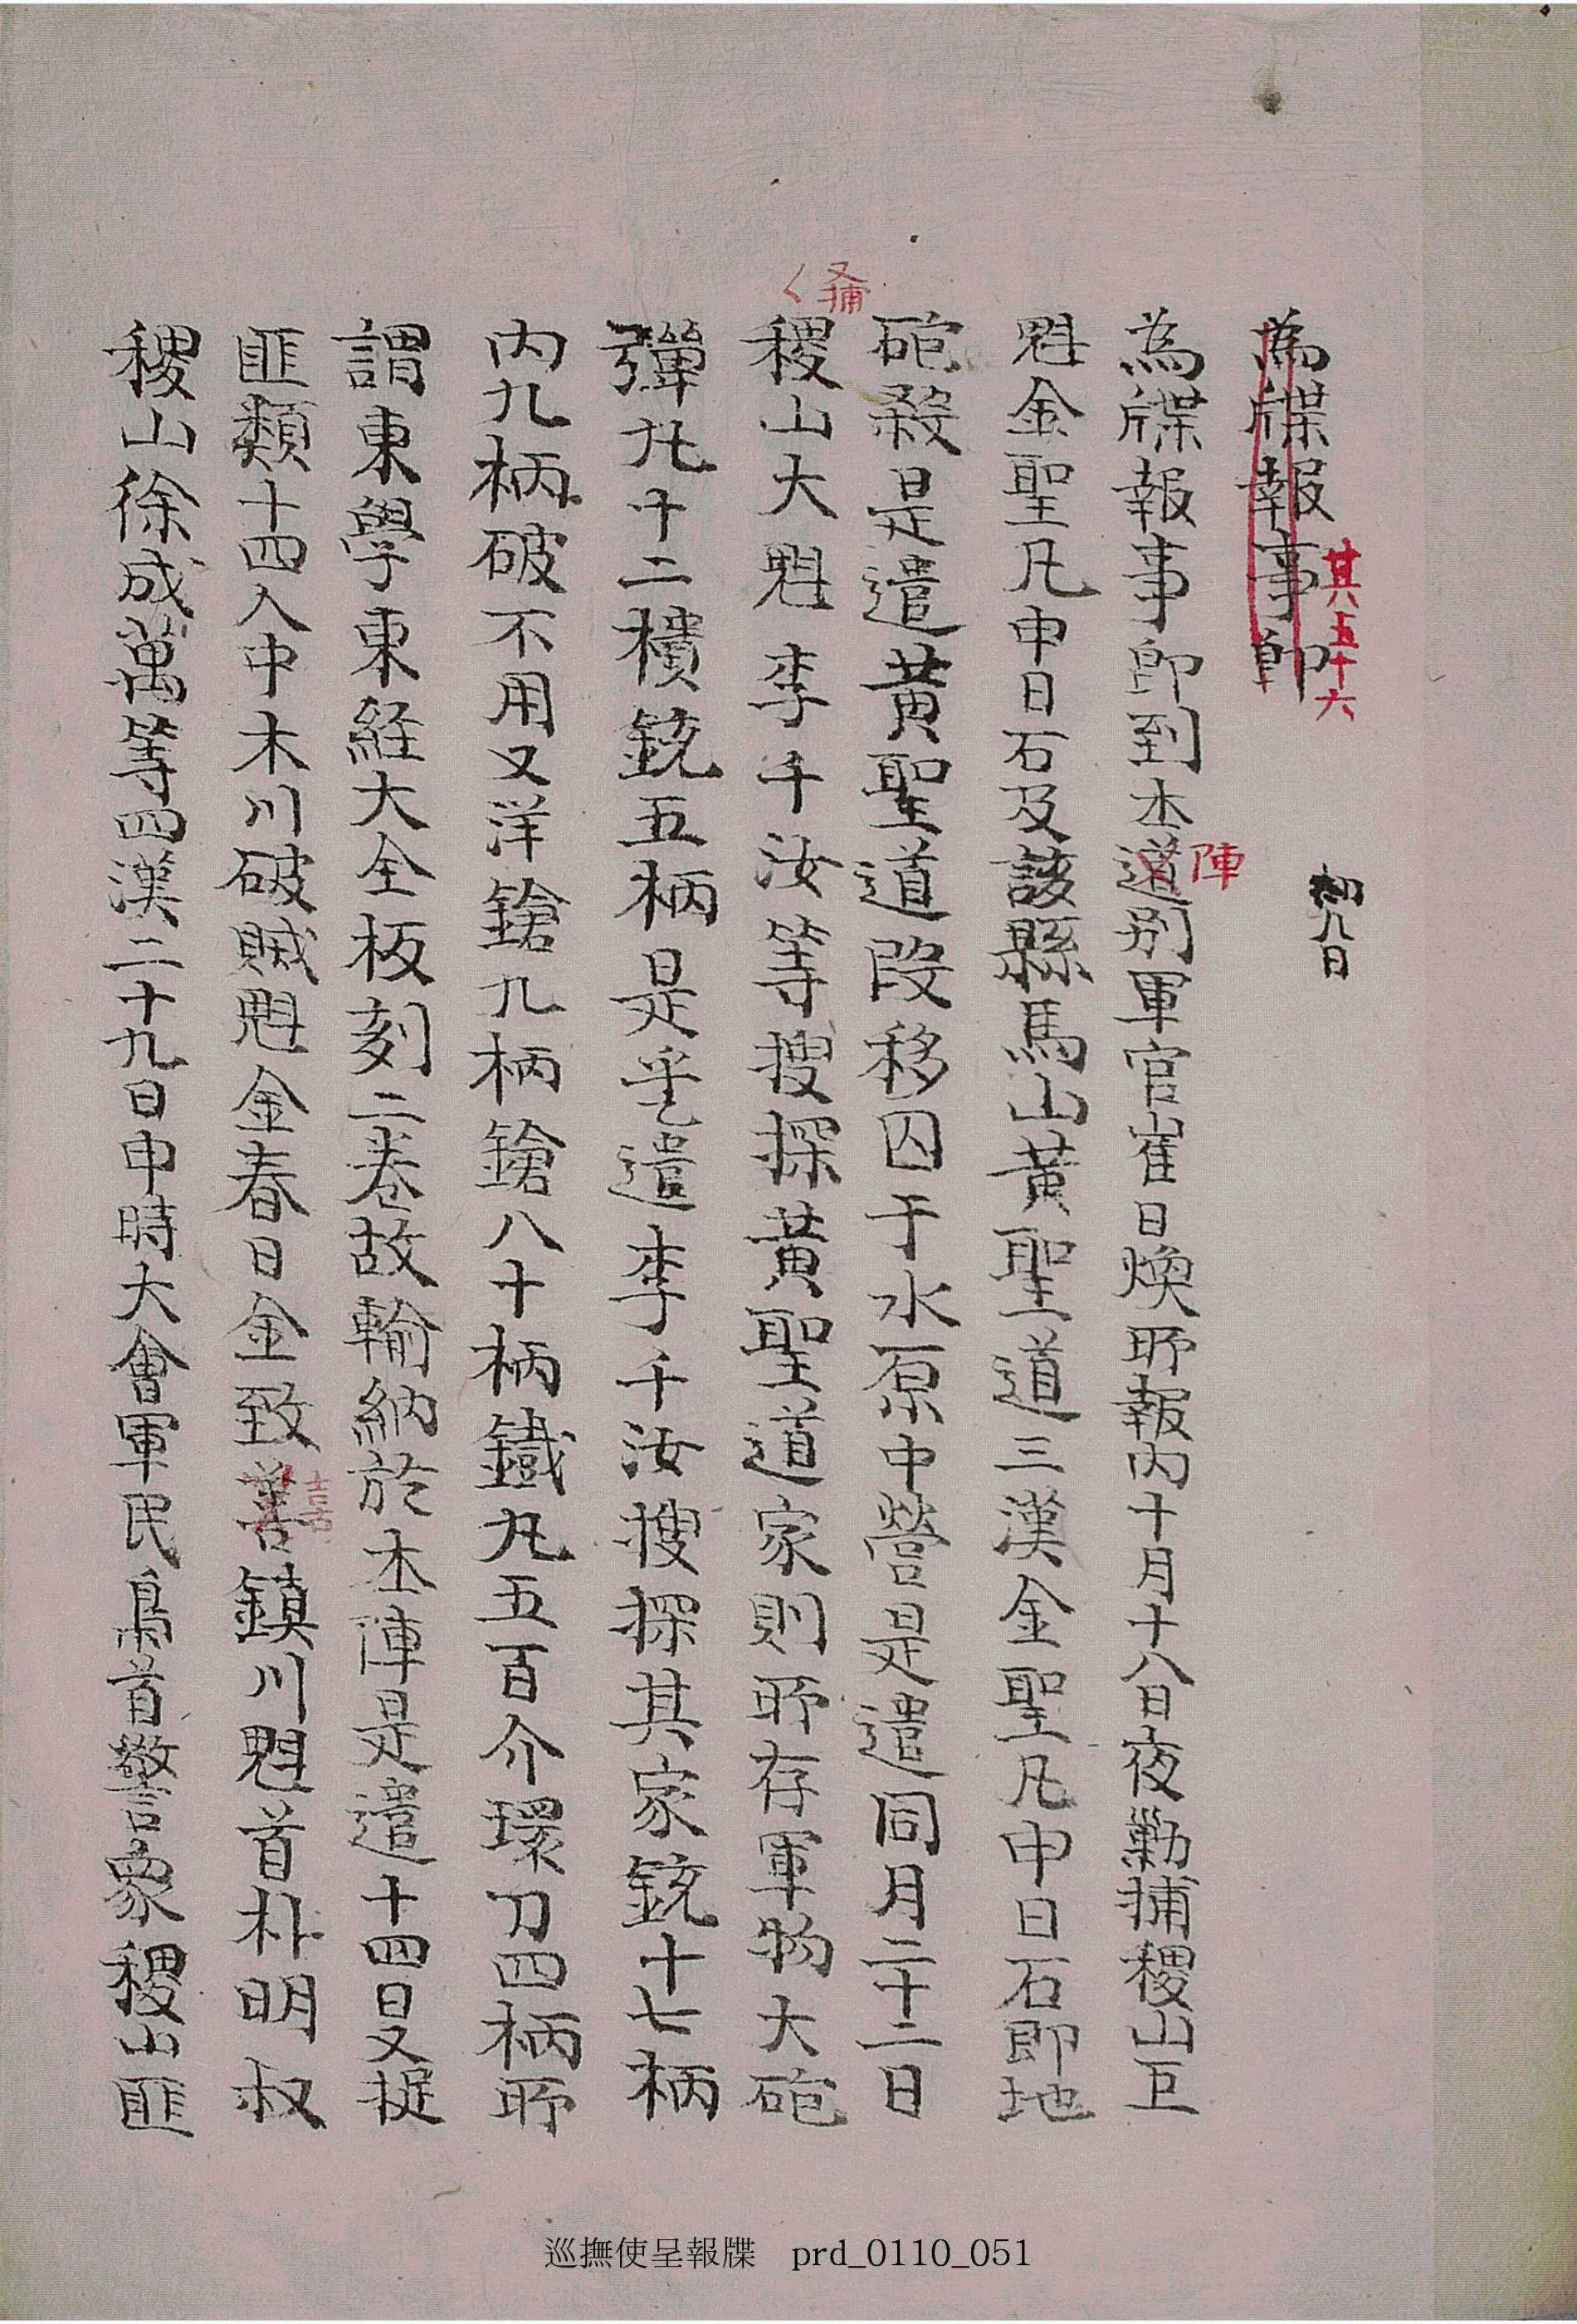 其五十六
初九日
為牒報事即
為牒報事即到本道別軍官崔日煥所報內十月十八日夜勦捕稷山巨
陣
魁金聖凡申日石及該縣馬山黃聖道三漢金聖凡申日石即地
砲殺是遣黃聖道段移囚于水原中營是遣同月二十二日
又捕
稷山大魁李千汝等搜探黃聖道家則所存軍物大砲
彈丸十二樻銃五柄是乎㫆遣李千汝搜探其家銃十七柄
內九柄破不用又洋鎗九柄鎗八十柄鐵丸五百介環刀四柄所
謂東學東經大全板刻二卷故輸納於本陣是遣十四日又捉
匪類十四人中木川破賊魁金春日金致善鎭川魁首朴明叔
喜
稷山徐成萬等四漢二十九日申時大會軍民梟首警衆稷山匪
巡撫使呈報牒 prd_0110_051